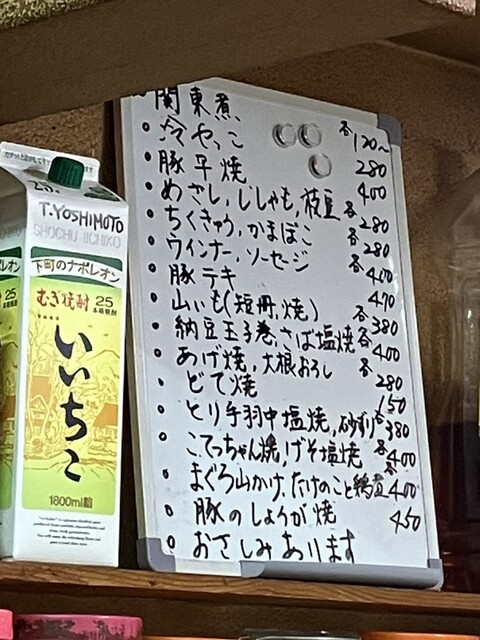 関東煮 各120~
冷やっこ 280
豚平焼 400
めざし,ししゃも,枝豆 各280
ちくきゅう,かまぼこ 各280
ウインナー,ソーセージ 各400
豚テキ 470
山いも(短冊,焼) 各380
納豆玉子巻,さば塩焼 各400
あげ焼,大根おろし 280
どて焼 150
とり手羽中塩焼,砂ずり 各380
こてっちゃん焼,げそ塩焼 各400
まぐろ山かけ,たけのこと鶏煮 各400
豚のしょうが焼 450
おさしみあります
25%
T.YOSHIMOTO
SHOCHU IICHIKO
下町のナポレオン
むぎ焼酎 25
本格焼酎
いいちこ
1800ml
レオン
25